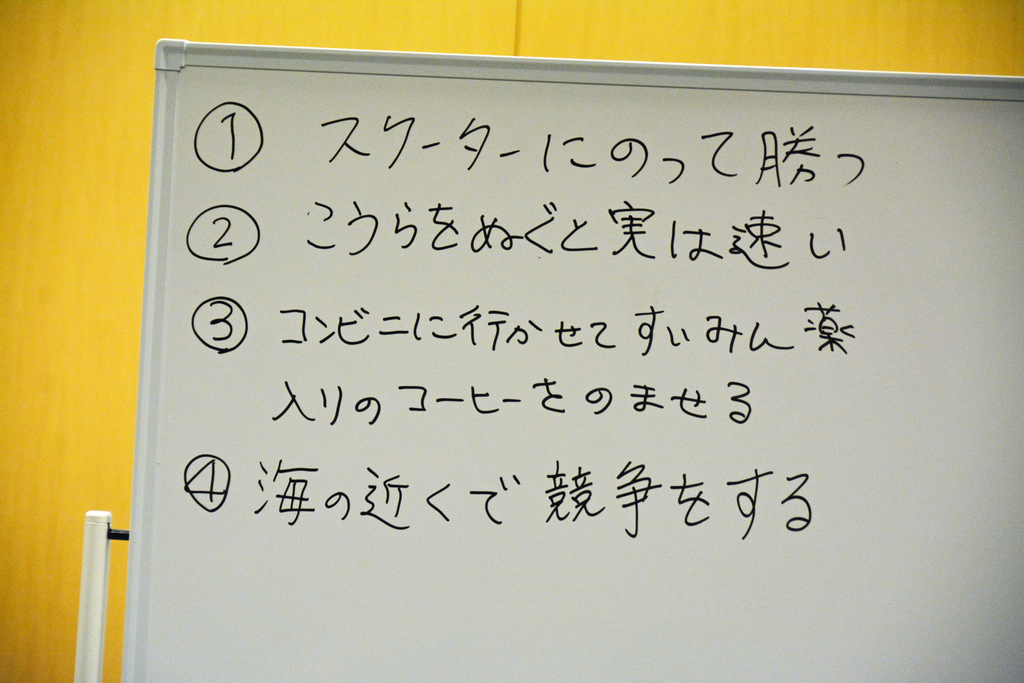 ① スクーターにのって勝つ
② こうらをぬぐと実は速い
③ コンビニに行かせてすいみん薬
入りのコーヒーをのませる
④ 海の近くで競争をする